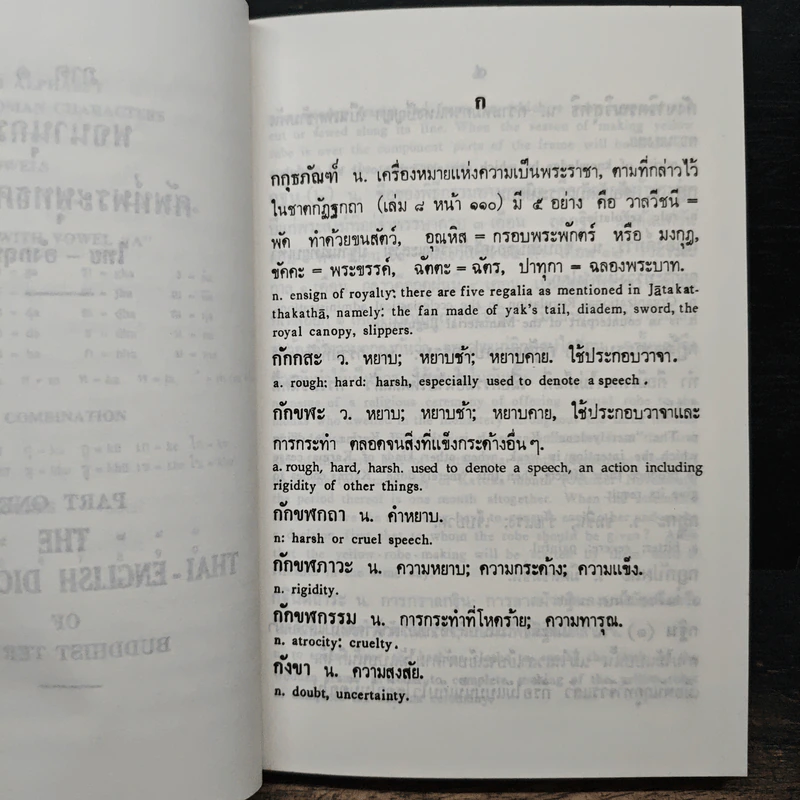 ก
กกุธภัณฑ์ น. เครื่องหมายแห่งความเป็นพระราชา, ตามที่กล่าวไว้
ในชาตกัฏฐกถา (เล่ม ๘ หน้า ๑๑๐) มี ๕ อย่าง คือ วาลวีชนี =
พัด ทำด้วยขนสัตว์, อุณหิส = กรอบพระพักตร์ หรือ มงกุฎ,
ขัคคะ = พระขรรค์, ฉัตตะ = ฉัตร, ปาทุกา = ฉลองพระบาท.
n. ensign of royalty; there are five regalia as mentioned in Jātakat-
thakathā, namely: the fan made of yak's tail, diadem, sword, the
royal canopy, slippers.
กักกสะ ว. หยาบ; หยาบช้า; หยาบคาย. ใช้ประกอบวาจา.
a. rough; hard; harsh, especially used to denote a speech.
กักขฬะ ว. หยาบ; หยาบช้า; หยาบคาย, ใช้ประกอบวาจาและ
การกระทำ ตลอดจนสิ่งที่แข็งกระด้างอื่น ๆ.
a. rough, hard, harsh. used to denote a speech, an action including
rigidity of other things.
กักขฬกถา น. คำหยาบ.
n: harsh or cruel speech.
กักขฬภาวะ น. ความหยาบ; ความกระด้าง; ความแข็ง.
n. rigidity.
กักขฬกรรม น. การกระทำที่โหดร้าย; ความทารุณ.
n. atrocity; cruelty.
กังขา น. ความสงสัย.
n. doubt, uncertainty.